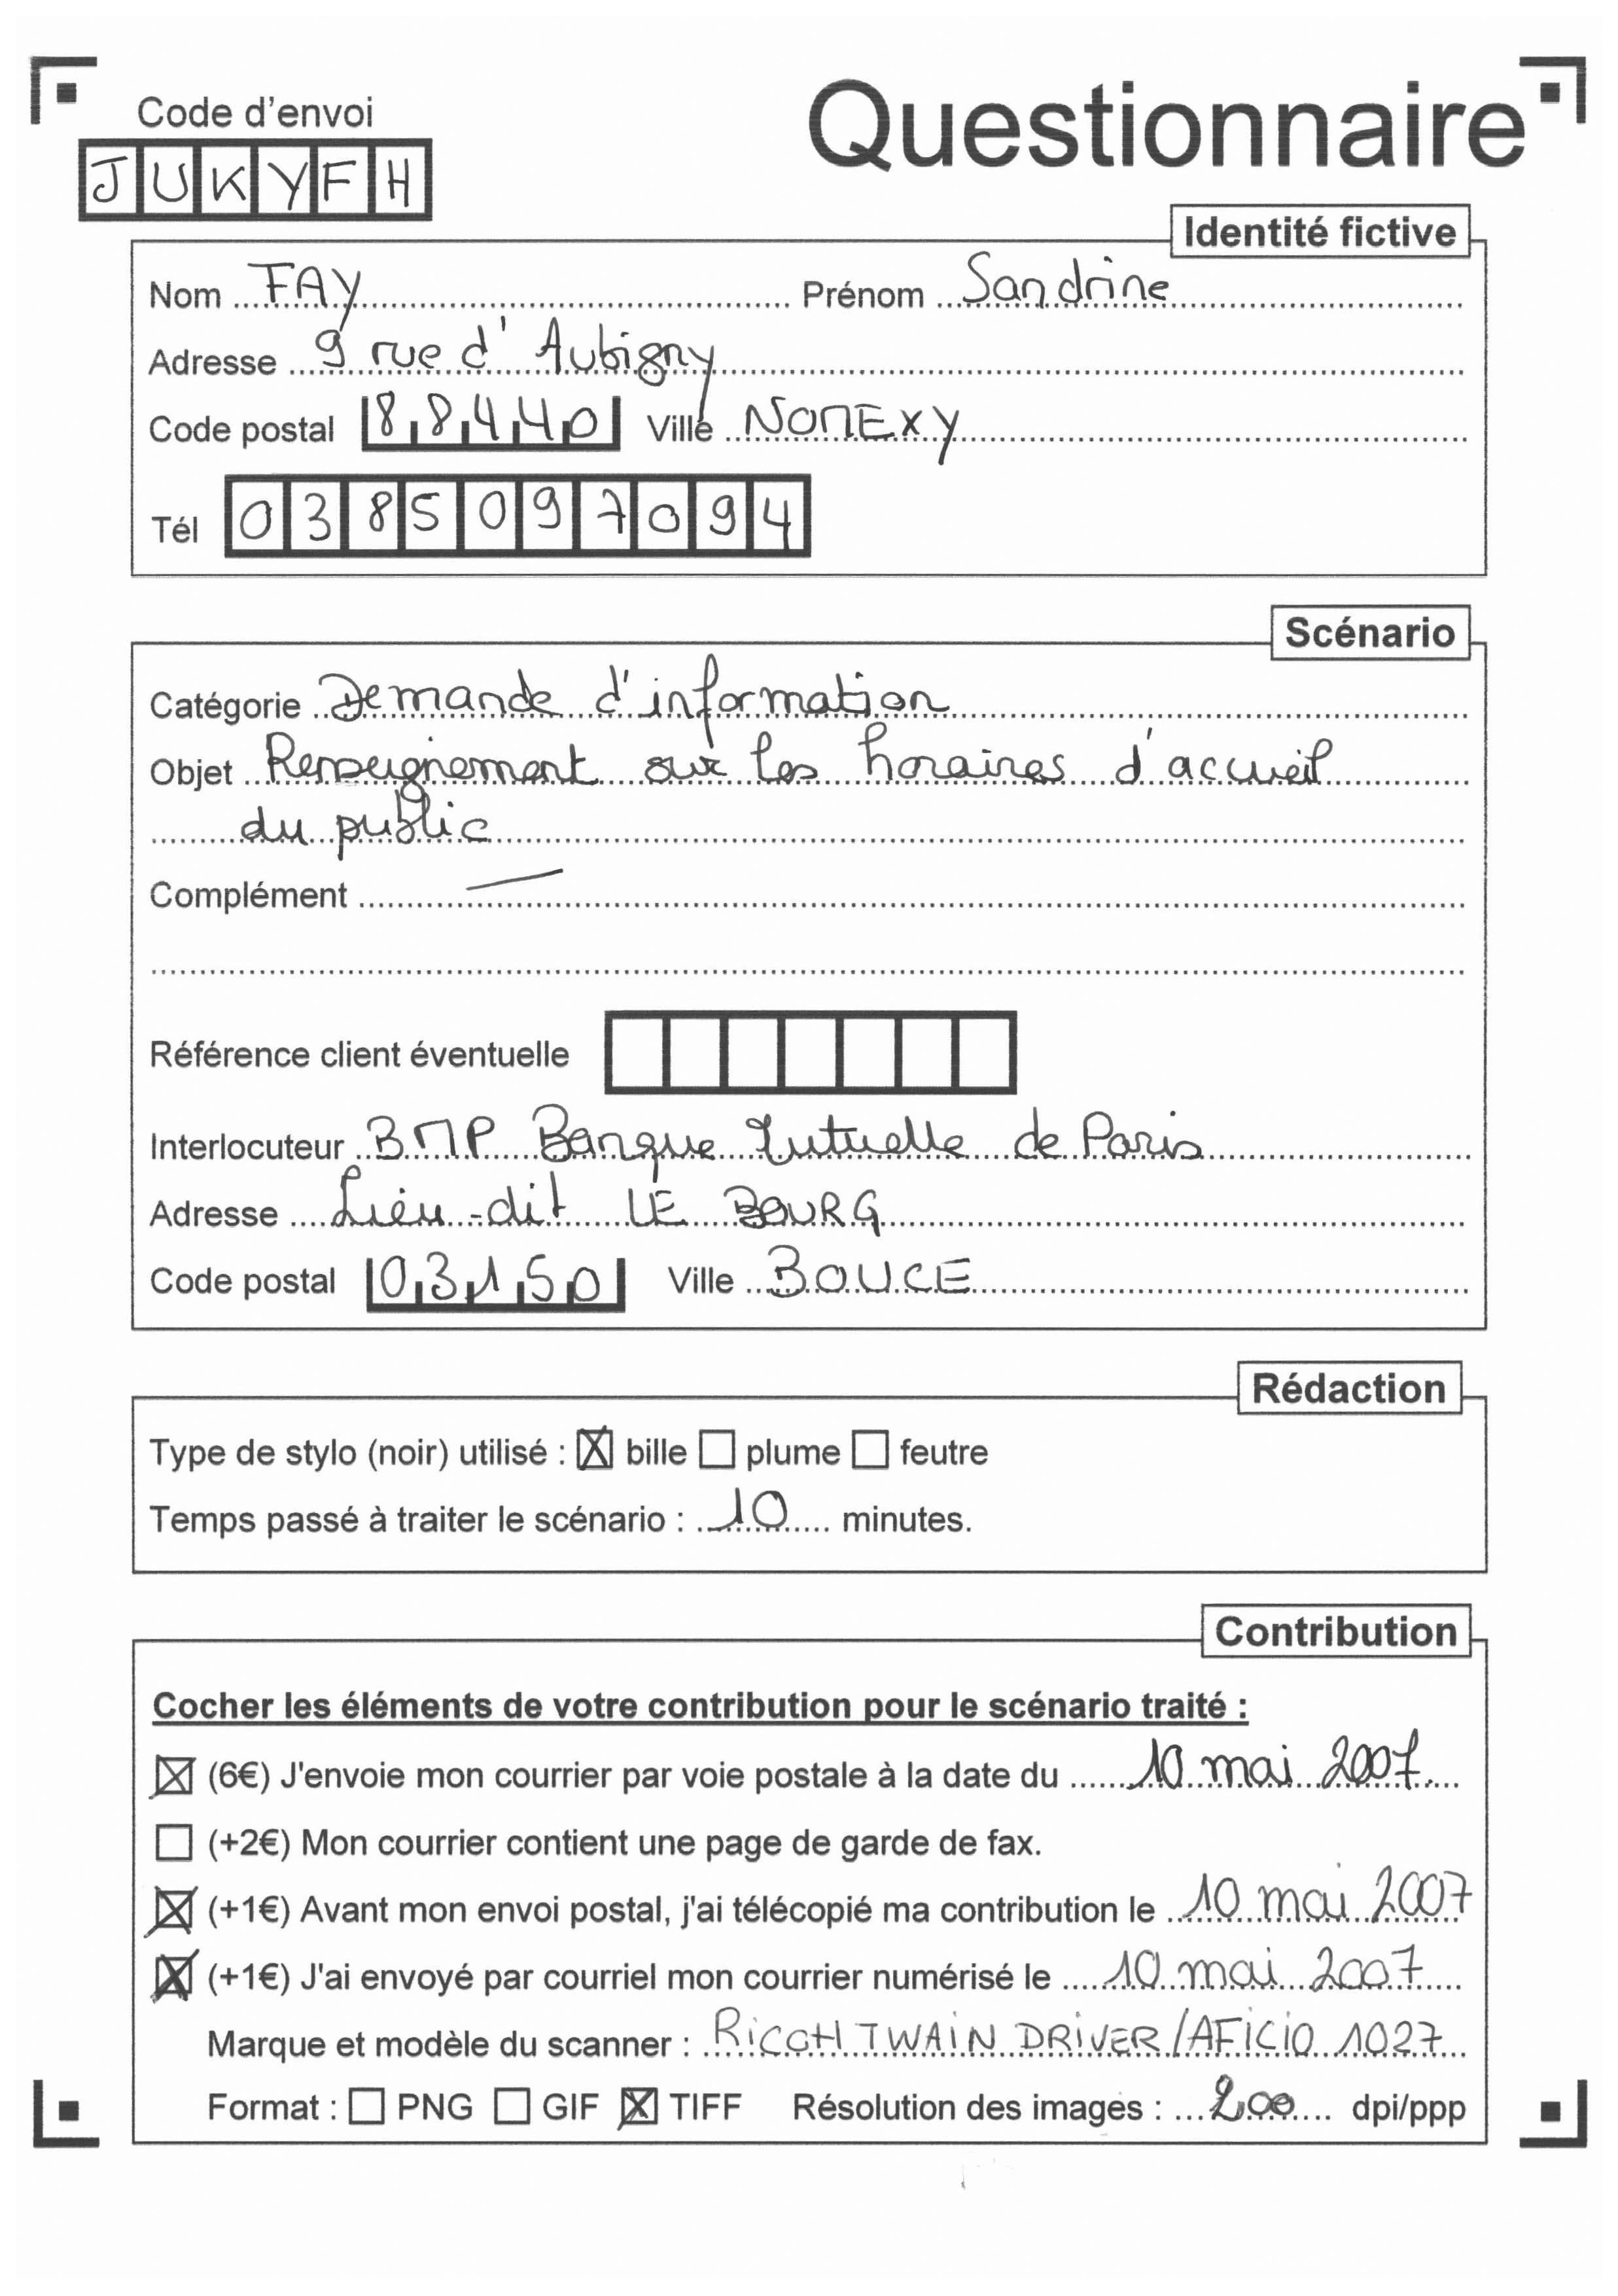 Code d'envoi
Questionnaire
JUKYFH
Identité fictive
Nom FAY Prénom Sandrine
Adresse 9 rue d'Aubigny
Code postal 88440 Ville NOMEXY
Tél 0385097094
Scénario
Catégorie Demande d'information
Objet Renseignement sur les horaires d'accueil
du public
Complément —
Référence client éventuelle
Interlocuteur BMP Banque Mutuelle de Paris
Adresse Lieu-dit LE BOURG
Code postal 03150 Ville BOUCE
Rédaction
Type de stylo (noir) utilisé : ☒ bille ☐ plume ☐ feutre
Temps passé à traiter le scénario : 10 minutes.
Contribution
Cocher les éléments de votre contribution pour le scénario traité :
☒ (6€) J'envoie mon courrier par voie postale à la date du 10 mai 2007
☐ (+2€) Mon courrier contient une page de garde de fax.
☒ (+1€) Avant mon envoi postal, j'ai télécopié ma contribution le 10 mai 2007
☒ (+1€) J'ai envoyé par courriel mon courrier numérisé le 10 mai 2007
Marque et modèle du scanner : RICOH TWAIN DRIVER/AFICIO 1027
Format : ☐ PNG ☐ GIF ☒ TIFF Résolution des images : 200 dpi/ppp